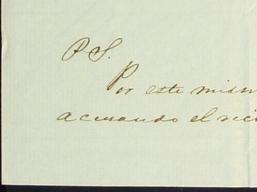 P.S.
Por este mism
acusando el reci